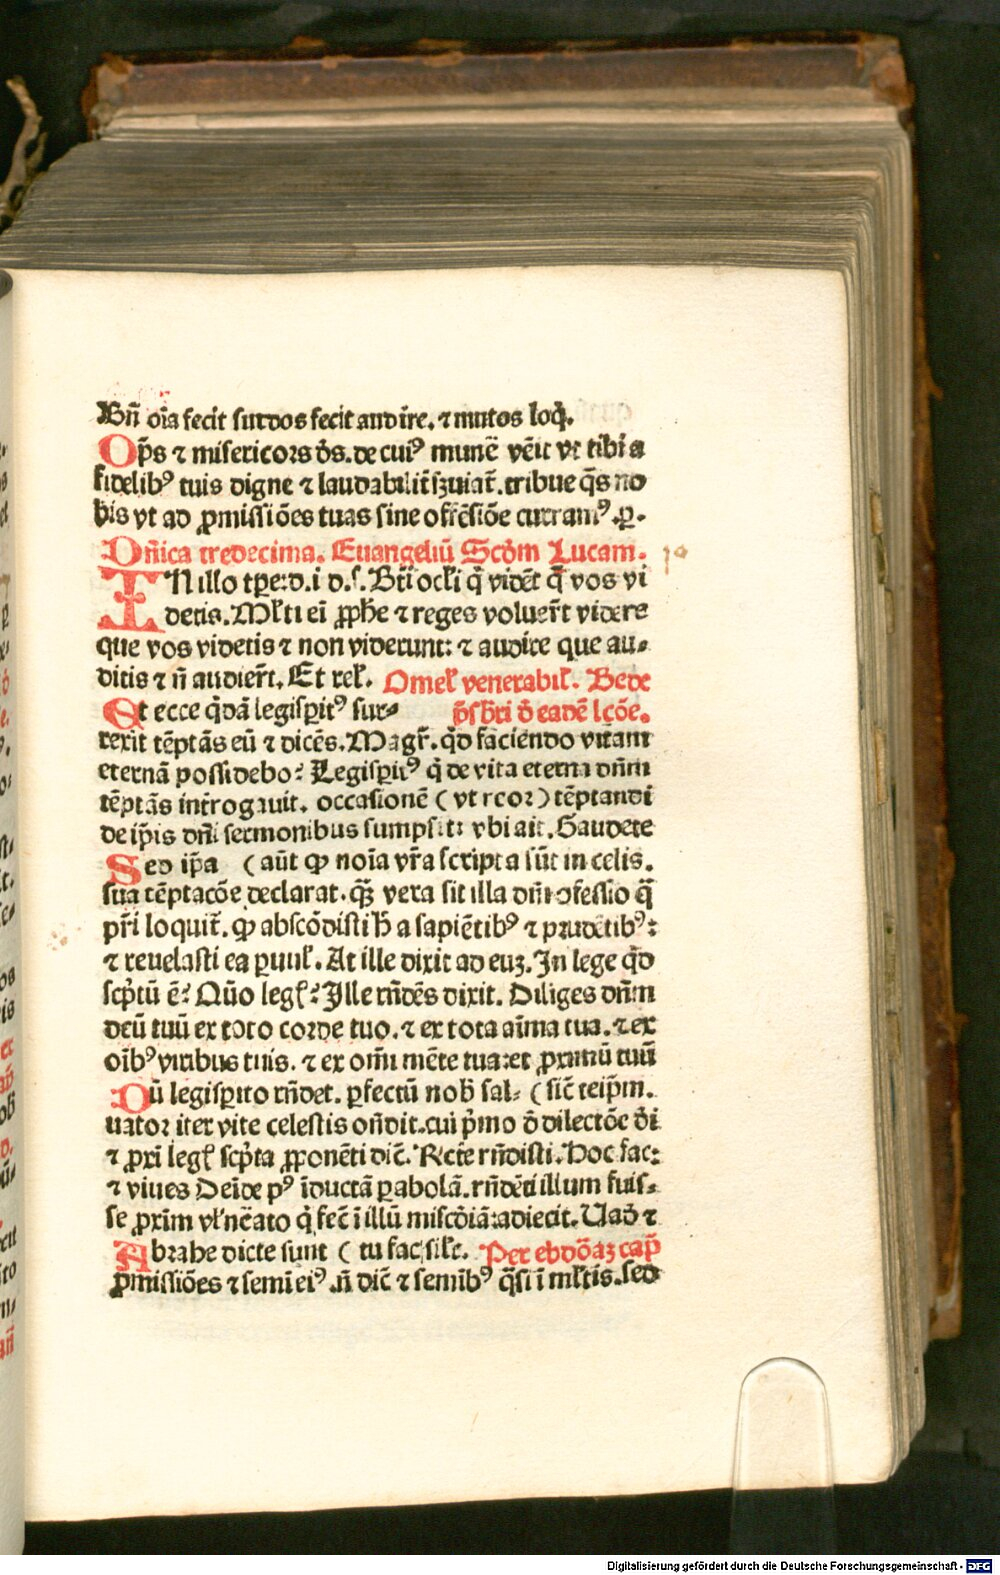 Bn̄ oīa fecit surdos fecit audīre. ⁊ mutos loq̄.
Op̄s ⁊ misericors ds̄. de cuiꝰ munē vēit vt tibi a
fidelibꝰ tuis digne ⁊ laudabilit̄ ꝫuiat̄. tribue qs̄ no
bis vt ad ꝓmissiōes tuas sine offēsiōe curramꝰ. ꝑ.
Dn̄ica tredecima. Euangeliū Scd̄m Lucam.
IN illo tꝑe: d. i. d. s. Bt̄i ocl̄i q̄ vidēt q̄ vos vi
detis. Ml̄ti ei̅ ꝓph̄e ⁊ reges voluer̄t videre
que vos videtis ⁊ non viderunt: ⁊ audire que au⸗
ditis ⁊ n̄ audier̄t. Et rel̄. Omel̄ venerabil̄. Bede
Et ecce qd̄ā legisꝑitꝰ sur⸗ p̄sbr̄i d̄ eadē lc̄ōe.
rexit tēptās eū ⁊ dicēs. Magr̄. qd̄ faciendo vitam
eternā possidebo: Legisꝑitꝰ q̄ de vita eterna dn̄m
tēptās int̄rogauit. occasionē ( vt reor ) tēptandi
de ip̄is dn̄i sermonibus sumpsit: vbi ait. Gaudete
Sed ip̄a ( aūt ꝙ noīa vr̄a scripta sūt in celis.
sua tēptacōe declarat. qꝫ̄ vera sit illa dn̄i ꝯfessio q̄
pr̄i loquit̄. ꝙ abscōdisti h̄ a sapiētibꝰ ⁊ prudētibꝰ:
⁊ reuelasti ea ꝑuul̄. At ille dixit ad euꝫ. In lege qd̄
scp̄tū ē: Quō leḡ: Ille rn̄dēs dixit. Diliges dn̄m
deū tuū ex toto corde tuo. ⁊ ex tota aīma tua. ⁊ ex
oībꝰ viribus tuis. ⁊ ex omī mēte tua: et ꝓximū tuū
Dū legisꝑito rn̄det. ꝑfectū nob̄ sal⸗ ( sic̄ teip̄m.
uator iter vite celestis on̄dit. cui p̄mo d̄ dilectōe dī
⁊ ꝓxī leḡ scp̄ta ꝓponēti dic̄. Rcte rn̄disti. Hoc fac:
⁊ viues Deīde pꝰ īductā ꝑabolā. rn̄dēti illum fuis⸗
se ꝓxīm vl̄nēato q̄ fec̄ ī illū miscd̄iā: adiecit. Uad̄ ⁊
Abrahe dicte sunt ( tu fac sil̄r. Per ebdōaꝫ cap̄
ꝓmissiōes ⁊ semī eiꝰ. n̄ dic̄ ⁊ semībꝰ q̄si ī ml̄tis. sed
Digitalisierung gefördert durch die Deutsche Forschungsgemeinschaft - DFG